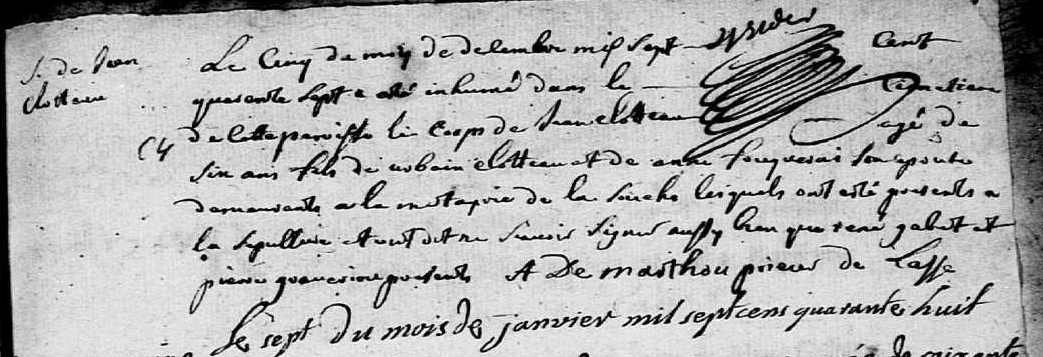 S. de Jean
Clotteau
C4
Le Cinq du mois de decembre mil sept Cent
quarente sept a esté inhumé dans le Cimetiere
de cette paroisse le Corps de Jean Clotteau agé de
six ans fils de urbain Clotteau et de anne fouquerai son epouse
demeurants a la metayrie de la lesquels ont esté presents a
la sepulture et ont dit ne sçavoir signer aussy bien que rené gabet et
pierre presents A De marthou prieur de Lasse
Le sept du mois de janvier mil sept cens quarante huit